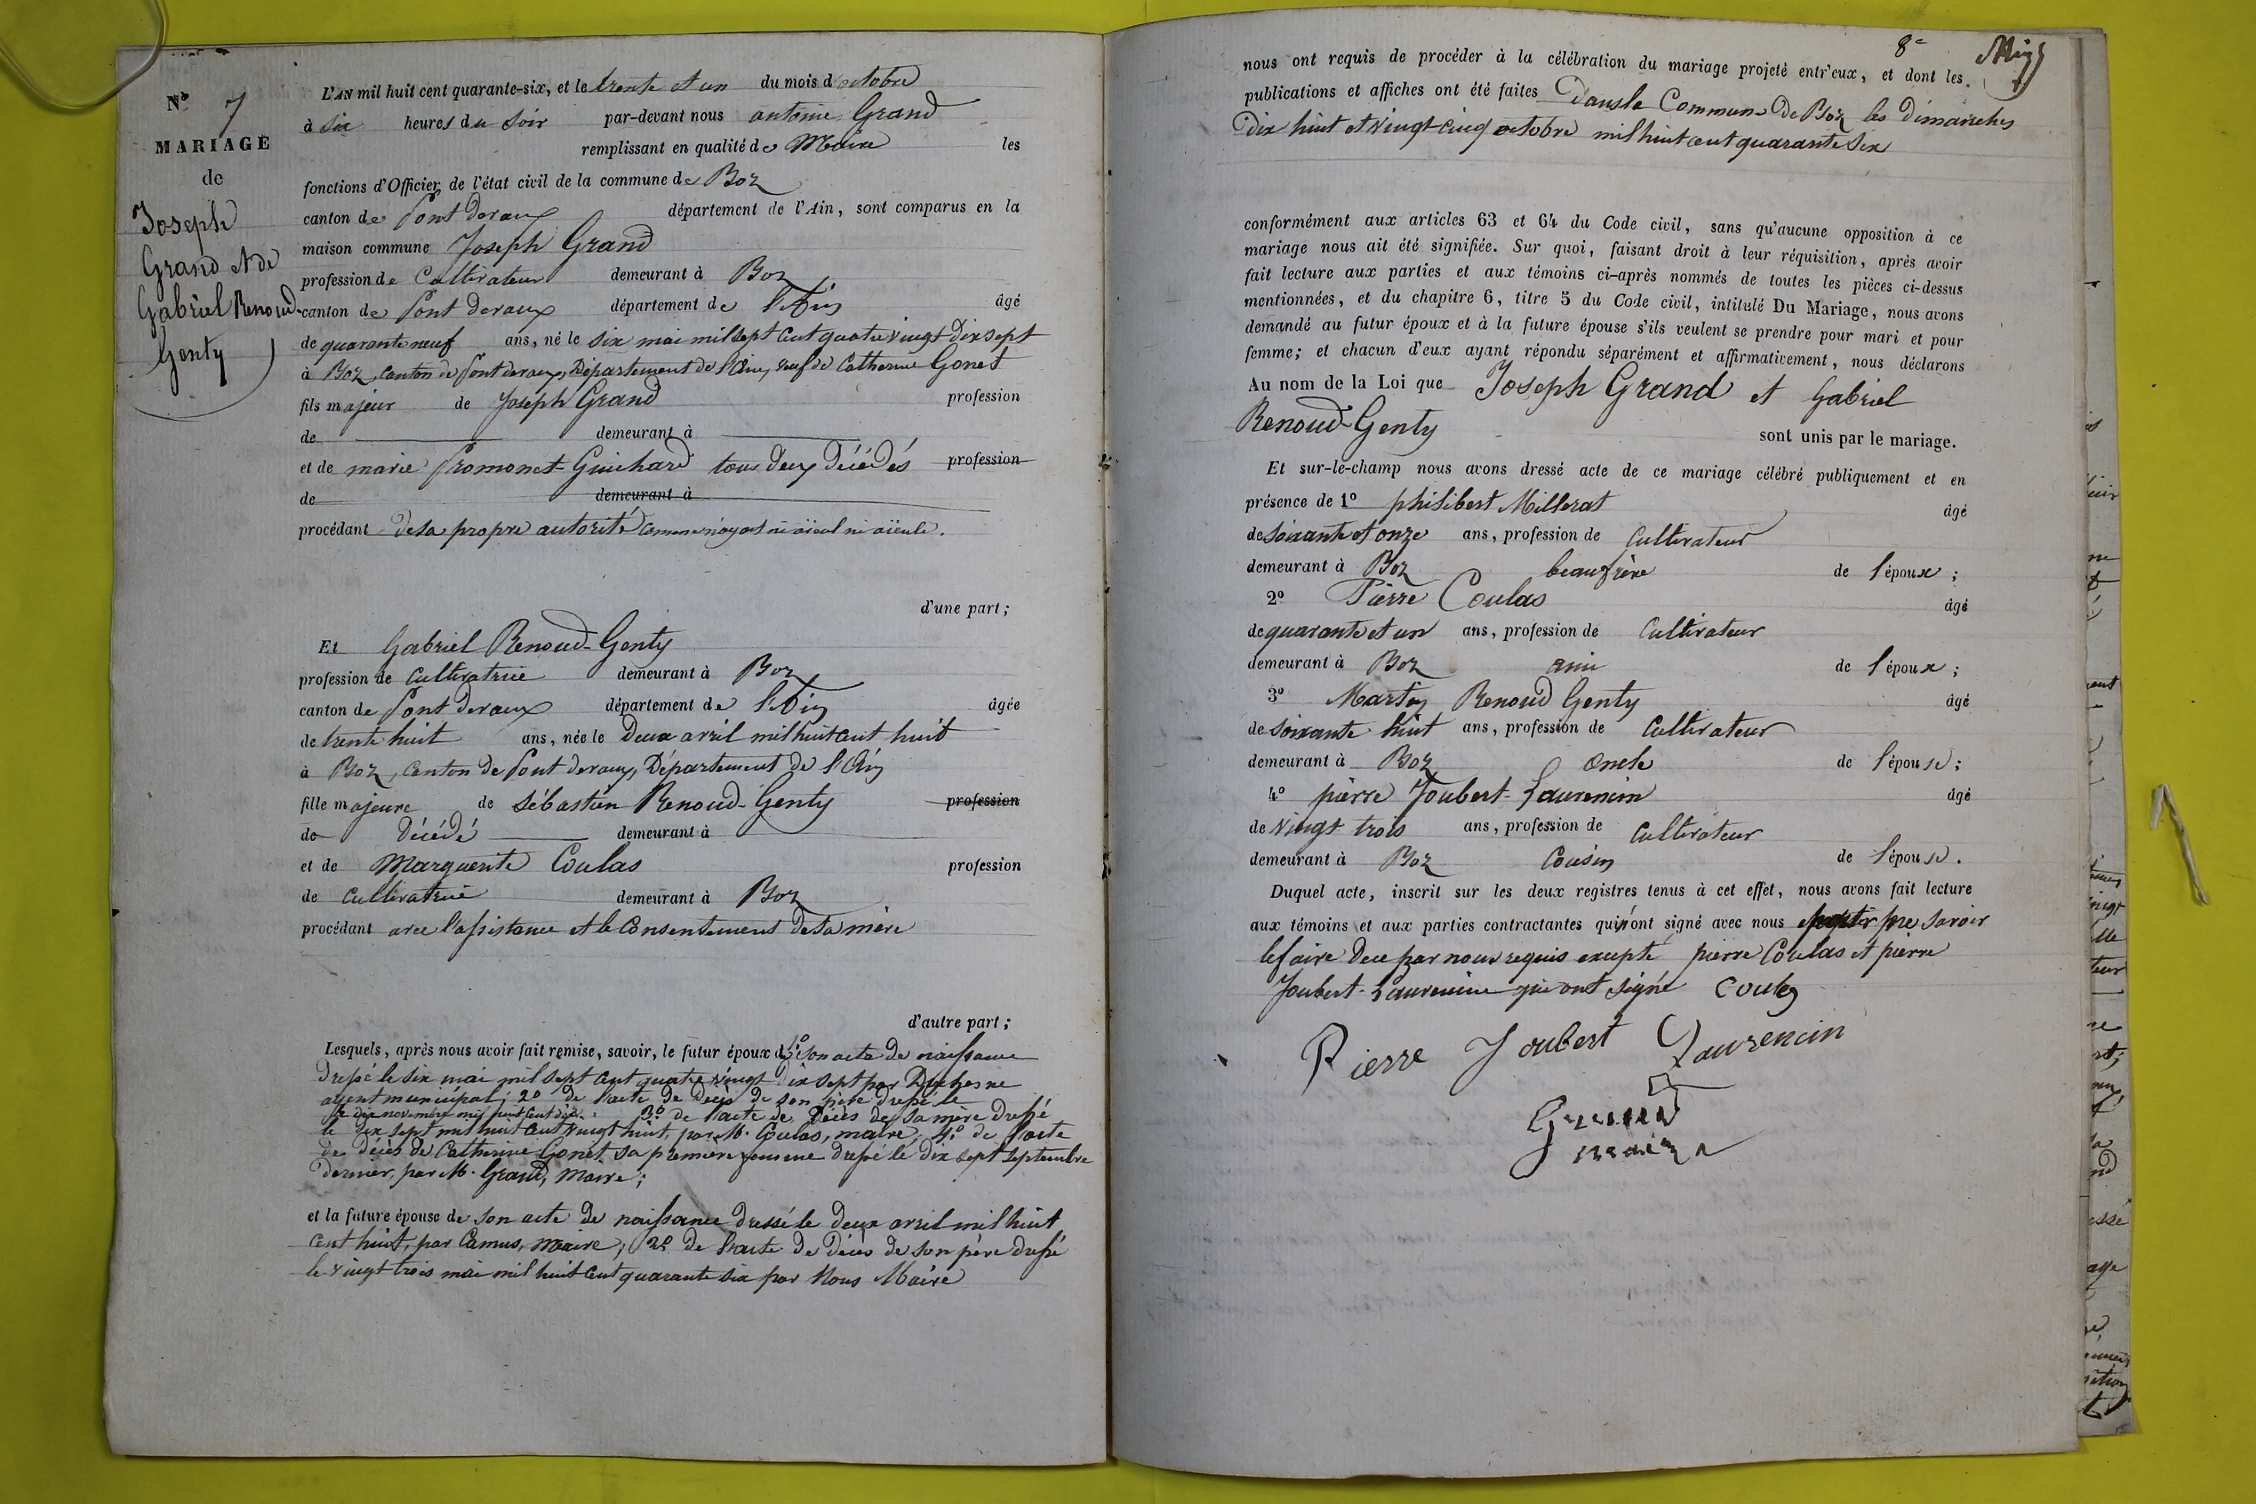 N° 7
MARIAGE
de
Joseph
Grand et de
Gabriel Renoud-
Genty
L'AN mil huit cent quarante-six, et le trente et un du mois d'octobre
à six heures du soir par-devant nous antoine Grand
remplissant en qualité de Maire les
fonctions d'Officier de l'état civil de la commune de Boz
canton de Pont devaux département de l'Ain, sont comparus en la
maison commune Joseph Grand
profession de Cultivateur demeurant à Boz
canton de Pont devaux département de l'Ain âgé
de quarante neuf ans, né le six mai mil sept cent quatre vingt dix sept
à Boz, canton de Pont devaux, Département de l'Ain, veuf de Catherine Gonet
fils majeur de Joseph Grand profession
de demeurant à
et de marie Promonet-Guichard tous deux décédés profession
de demeurant à
procédant de sa propre autorité comme n'ayant ni aïeul ni aïeule.
d'une part;
Et Gabriel Renoud-Genty
profession de Cultivatrice demeurant à Boz
canton de Pont devaux département de l'Ain âgée
de trente huit ans, née le Deux avril mil huit cent huit
à Boz, canton de Pont devaux, Département de l'Ain
fille majeure de Sébastien Renoud-Genty profession
de Décédé demeurant à
et de Marguerite Coulas profession
de Cultivatrice demeurant à Boz
procédant avec l'assistance et le Consentement de sa mère
d'autre part;
Lesquels, après nous avoir fait remise, savoir, le futur époux de 1° son acte de naissance
Dressé le six mai mil sept cent quatre vingt dix sept par Duchesne
agent municipal; 2° de l'acte de Décès de son père dressé le
dix novembre mil huit cent dix 3° de l'acte de Décès de sa mère dressé
le dix sept mil huit cent vingt huit, par M. Coulas, maire; 4° de l'acte
de Décès de Catherine Gonet sa première femme dressé le dix sept septembre
dernier, par M. Grand, Maire;
et la future épouse de son acte de naissance dressé le deux avril mil huit
cent huit, par Camus, Maire; 2° de l'acte de Décès de son père dressé
le vingt trois mai mil huit cent quarante six par Nous Maire
8e
nous ont requis de procéder à la célébration du mariage projeté entr'eux, et dont les
publications et affiches ont été faites Dans la Commune De Boz les Dimanches
Dix huit et vingt cinq octobre mil huit cent quarante six
conformément aux articles 63 et 64 du Code civil, sans qu'aucune opposition à ce
mariage nous ait été signifiée. Sur quoi, faisant droit à leur réquisition, après avoir
fait lecture aux parties et aux témoins ci-après nommés de toutes les pièces ci-dessus
mentionnées, et du chapitre 6, titre 5 du Code civil, intitulé Du Mariage, nous avons
demandé au futur époux et à la future épouse s'ils veulent se prendre pour mari et pour
femme; et chacun d'eux ayant répondu séparément et affirmativement, nous déclarons
Au nom de la Loi que Joseph Grand et Gabriel
Renoud-Genty sont unis par le mariage.
Et sur-le-champ nous avons dressé acte de ce mariage célébré publiquement et en
présence de 1° philibert Millerat âgé
de soixante et onze ans, profession de Cultivateur
demeurant à Boz beaufrère de l'époux;
2° Pierre Coulas âgé
de quarante et un ans, profession de Cultivateur
demeurant à Boz ami de l'époux;
3° Martin Renoud Genty âgé
de soixante huit ans, profession de Cultivateur
demeurant à Boz oncle de l'épouse;
4° pierre Joubert-Laurencin âgé
de vingt trois ans, profession de Cultivateur
demeurant à Boz Cousin de l'épouse.
Duquel acte, inscrit sur les deux registres tenus à cet effet, nous avons fait lecture
aux témoins et aux parties contractantes qui n'ont signé avec nous pour ne savoir
le faire De ce par nous requis excepté pierre Coulas et pierre
Joubert-Laurencin qui ont signé Coulas
Pierre Joubert Laurencin
Grand
maire